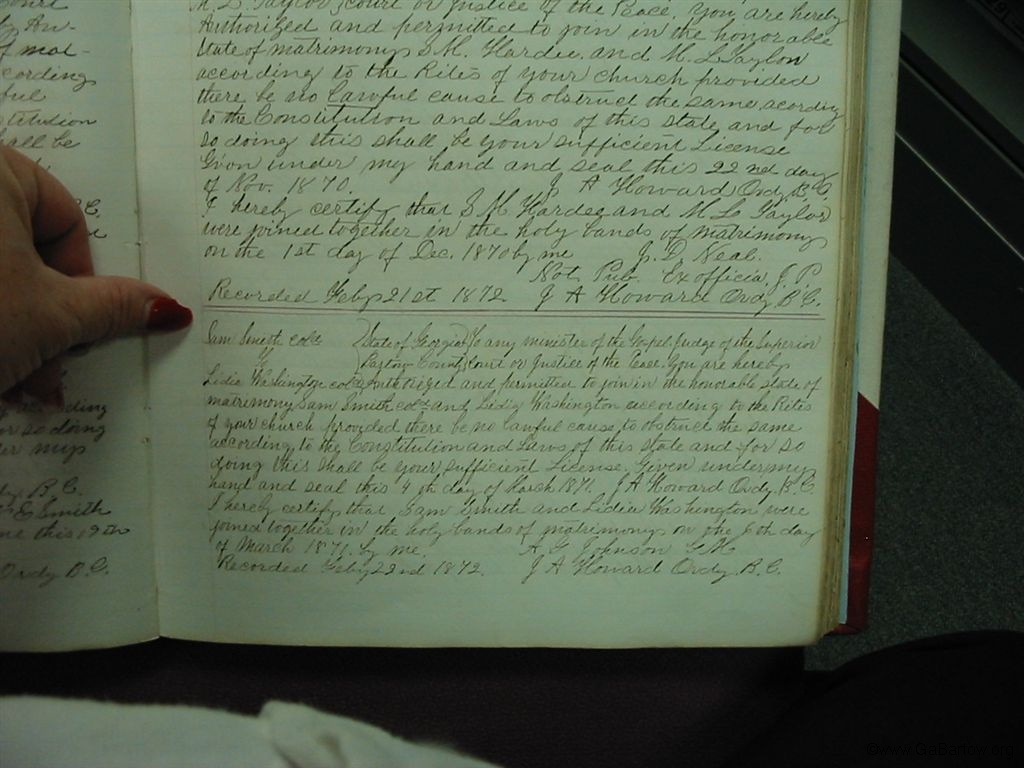 M. L. Taylor, Court or Justice of the Peace. You are hereby
Authorized and permitted to join in the honorable
State of matrimony S. M. Hardee and M. L Taylor
according to the Rites of your church provided
there be no Lawful cause to obstruct the same, acording
to the Constitution and Laws of this state and for
so doing this shall be your sufficient License
Given under my hand and seal this 22nd day
of Nov. 1870. J A Howard Ordy. B. C.
I hereby certify that S M Hardee and M L Taylor
were joined together in the holy bands of matrimony
on the 1st day of Dec. 1870 by me J. D Neal.
Not. Pub. Ex officia J. P.
Recorded Feby 21st 1872. J A Howard Ordy B. C.
Sam Smith cold State of Georgia To any minister of the Gospel Judge of the Superior
& Bartow County Court or Justice of the Peace. You are hereby
Lidia Washington cold Authorized and permitted to join in the honorable state of
matrimony Sam Smith cold and Lidia Washington according to the Rites
of your church provided there be no Lawful cause to obstruct the same
according to the Constitution and Laws of this state and for so
doing this shall be your sufficient License. Given under my
hand and seal this 4th day of March 1871. J A Howard Ordy. B. C.
I hereby certify that Sam Smith and Lidia Washington were
joined together in the holy bands of matrimony on the 6th day
of March 1871. by me. A G Johnson
Recorded Feby 22nd 1872. J A Howard Ordy. B. C.
cording
ful
all be
or so doing
B. C.
E Smith
me this 19th
Ordy B. C.